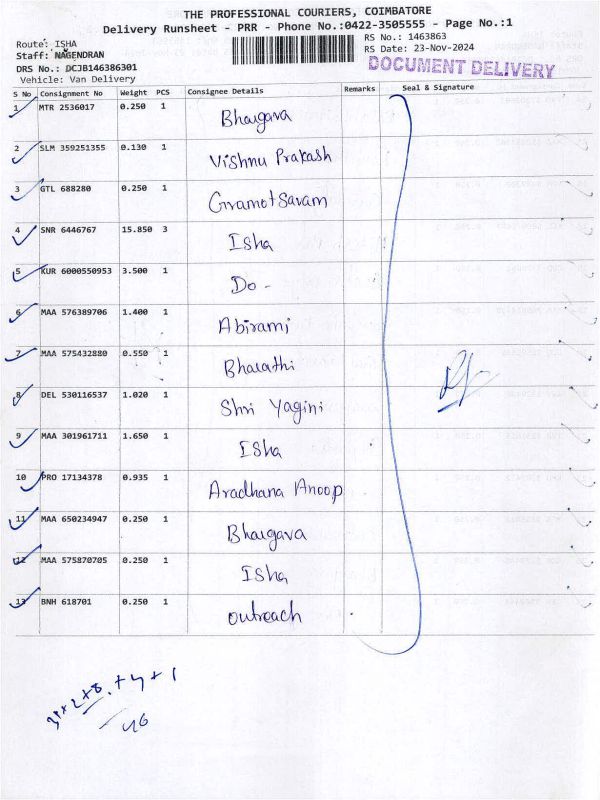 THE PROFESSIONAL COURIERS, COIMBATORE
Delivery Runsheet - PRR - Phone No.:0422-3505555 - Page No.:1
Route: ISHA
Staff: NAGENDRAN
DRS No.: DCJB146386301
Vehicle: Van Delivery
RS No.: 1463863
RS Date: 23-Nov-2024
DOCUMENT DELIVERY
S No Consignment No Weight PCS Consignee Details Remarks Seal & Signature
1 MTR 2536017 0.250 1 Bhargava
2 SLM 359251355 0.130 1 Vishnu Prakash
3 GTL 688280 0.250 1 Gramotsavam
4 SNR 6446767 15.850 3 Isha
5 KUR 6000550953 3.500 1 Do -
6 MAA 576389706 1.400 1 Abirami
7 MAA 575432880 0.550 1 Bharathi
8 DEL 530116537 1.020 1 Shri Yagini
9 MAA 301961711 1.650 1 Isha
10 PRO 17134378 0.935 1 Aradhana Anoop
11 MAA 650234947 0.250 1 Bhargava
12 MAA 575870705 0.250 1 Isha
13 BNH 618701 0.250 1 outreach